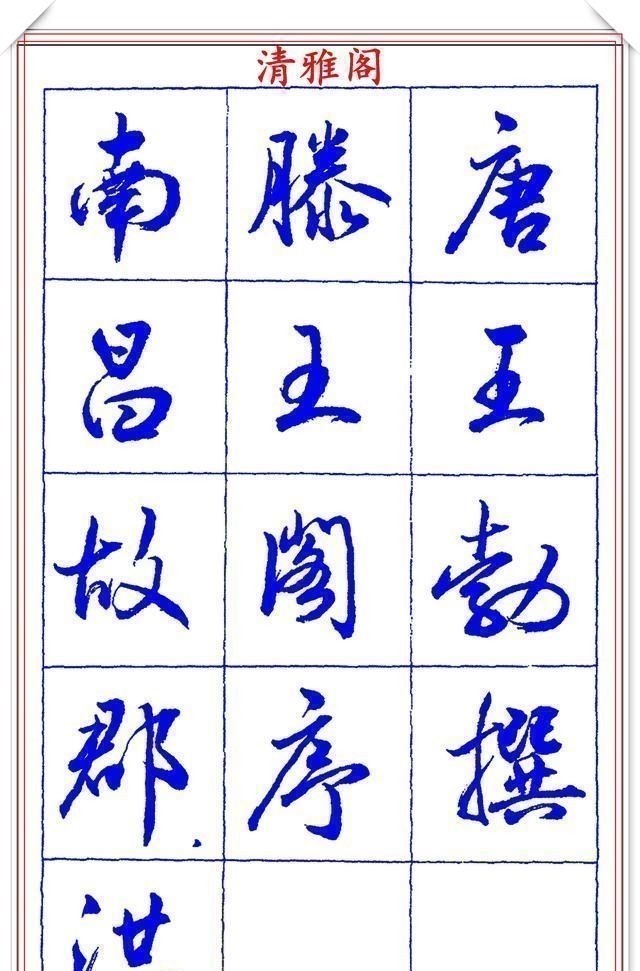 清雅阁
唐王勃撰
滕王阁序
南昌故郡洪